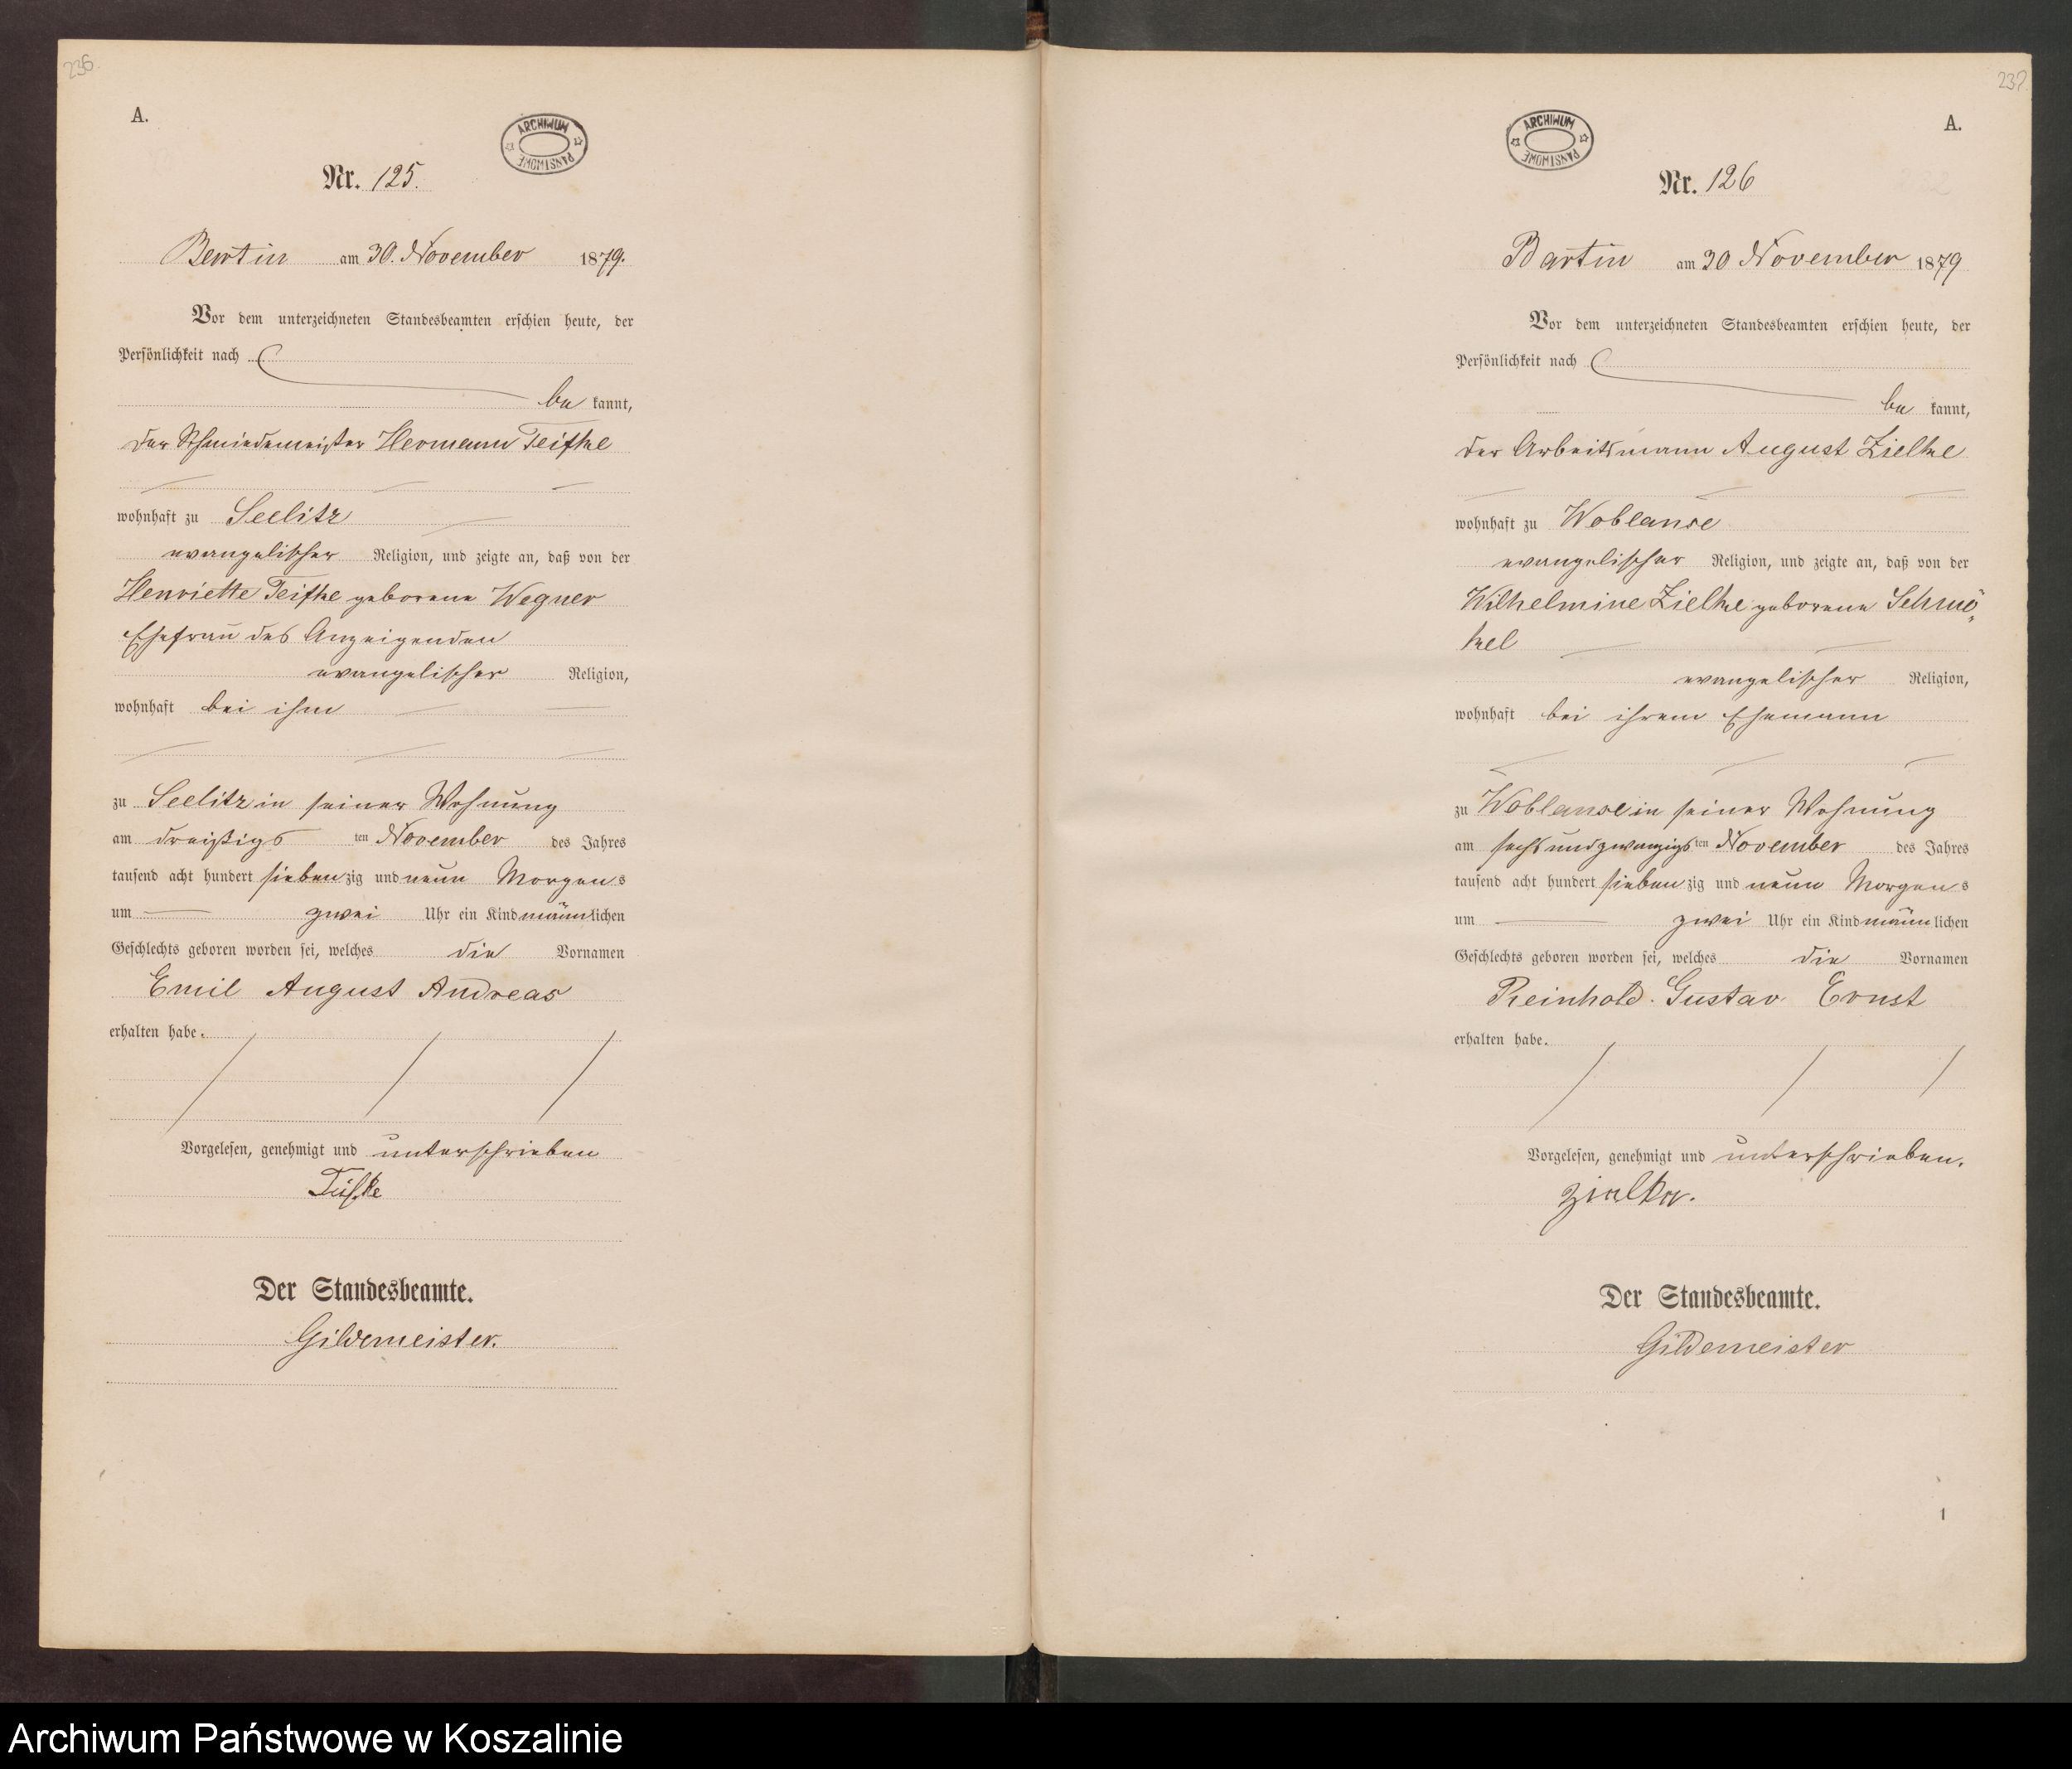 236.
A.
ARCHIWUM PAŃSTWOWE
Nr. 125.
Bartin am 30. November 1879.
Vor dem unterzeichneten Standesbeamten erschien heute, der
Persönlichkeit nach
be kannt,
der Schmiedemeister Hermann Teifke
wohnhaft zu Seelitz
evangelischer Religion, und zeigte an, daß von der
Henriette Teifke geborene Wegner
Ehefrau des Anzeigenden
evangelischer Religion,
wohnhaft bei ihm
zu Seelitz in seiner Wohnung
am dreißigs ten November des Jahres
tausend acht hundert sieben zig und neun Morgens
um zwei Uhr ein Kind männlichen
Geschlechts geboren worden sei, welches die Vornamen
Emil August Andreas
erhalten habe.
Vorgelesen, genehmigt und unterschrieben
Der Standesbeamte.
Gildemeister.
237.
A.
ARCHIWUM PAŃSTWOWE
Nr. 126
Bartin am 30 November 1879
Vor dem unterzeichneten Standesbeamten erschien heute, der
Persönlichkeit nach
be kannt,
der Arbeitsmann August Zielke
wohnhaft zu Woblanse
evangelischer Religion, und zeigte an, daß von der
Wilhelmine Zielke geborene Schmö„
kel
evangelischer Religion,
wohnhaft bei ihrem Ehemann
zu Woblanse in seiner Wohnung
am sechsundzwanzigs ten November des Jahres
tausend acht hundert sieben zig und neun Morgens
um zwei Uhr ein Kind männlichen
Geschlechts geboren worden sei, welches die Vornamen
Reinhold Gustav Ernst
erhalten habe.
Vorgelesen, genehmigt und unterschrieben.
Zielke.
Der Standesbeamte.
Gildemeister
1
Archiwum Państwowe w Koszalinie